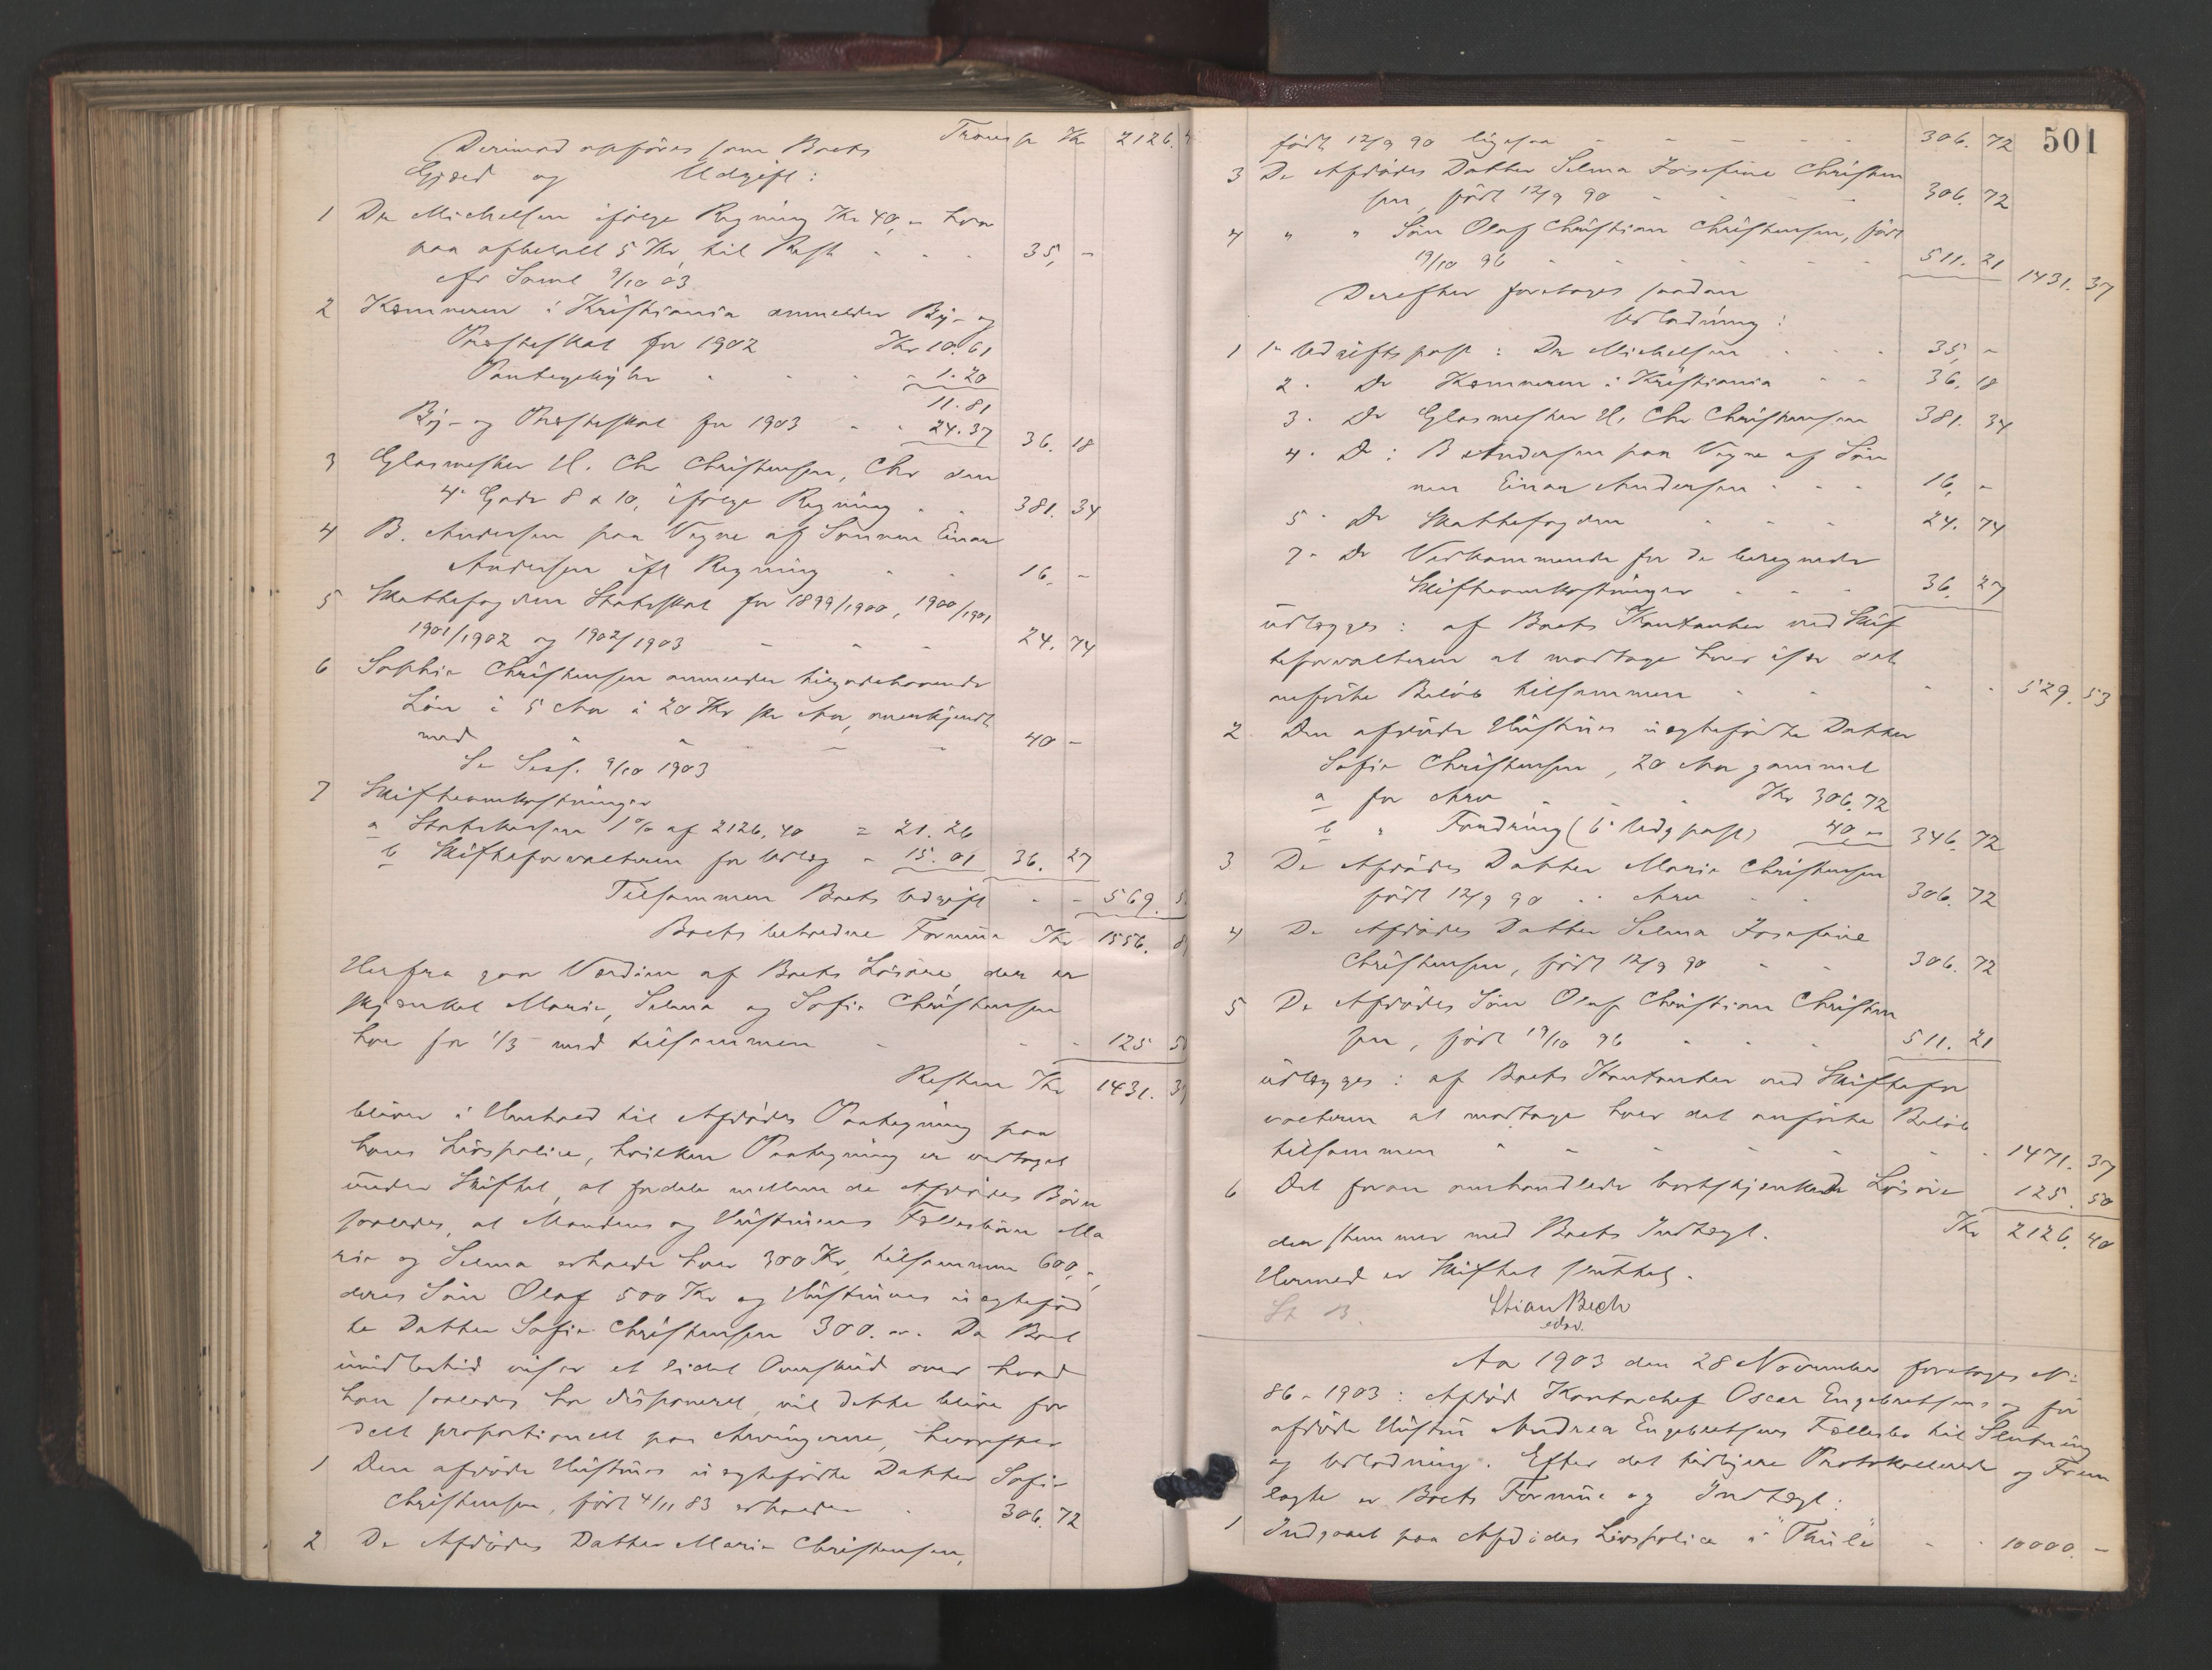 Transp Kr 2126. 4
Derimod opføres som Boets
Gjæld og Udgift:
1 Dr Michelsen ifølge Regning Kr 40,- hvor
paa afbetalt 5 Kr, til Rest - - - 35, -
cfr Saml 9/10 03
2 Kæmneren i Kristiania anmelder By- og
Præsteskat for 1902 Kr 10.61
Pantegebyhr - - - 1.20
11.81
By- og Præsteskat for 1903 - - 24.37 36. 18
3 Glasmester H. Chr Christensen, Chr den
4' Gade 8 & 10, ifølge Regning - - 381. 34
4 B. Andersen paa Vegne af Sønnen Einar
Andersen ifl Regning - - 16, -
5 Skattefogden Statsskat for 1899/1900, 1900/1901
1901/1902 og 1902/1903 - - - 24. 74
6 Sophie Christensen anmelder tilgodehavende
Løn i 5 Aar à 20 Kr pr Aar, anerkjendt
med - - - - 40 -
Se Sess. 9/10 1903
7 Skifteomkostninger
a Statskassen 1% af 2126,40 = 21.26
b Skifteforvalteren for Udlæg - 15.01 36. 27
Tilsammen Boets Udgift - - 569. 5
Boets beholdne Formue Kr 1556. 8
Herfra gaar Værdien af Boets Løsøre, der er
skjænket Marie, Selma og Sofie Christensen
hver for 1/3 med tilsammen - - - 125 5
Resten Kr 1431. 3
bliver i Henhold til Afdødes Paategning paa
hans Livspolice, hvilken Paategning er vedtaget
under Skiftet, at fordele mellem de Afdødes Børn
saaledes, at Mandens og Hustruens Fællesbørn Ma
rie og Selma erholder hver 300 Kr, tilsammen 600,-,
deres Søn Olaf 500 Kr og Hustruens uægtefød
te Datter Sofie Christensen 300.-. Da Boet
imidlertid viser et lidet Overskud over hvad
han saaledes har disponeret, vil dette blive for
delt proportionelt paa Arvingerne, hvorefter
1 Den afdøde Hustrues uægtefødte Datter Sofie
Christensen, født 4/11 83 erholder - 306. 72
2 De Afdødes Datter Marie Christensen,
501
født 12/9 90 ligesaa - - - - - 306. 72
3 De Afdødes Datter Selma Josefine Christen
sen, født 12/9 90 - - - - 306. 72
4 " " Søn Olaf Christian Christensen, født
19/10 96 - - - - - - 511. 21 1431. 37
Derefter foretages saadan
Udlodning:
1 1' Udgiftspost: Dr Michelsen - - - 35, -
2' Do Kæmneren i Kristiania - - 36. 18
3' Do Glasmester H. Chr Christensen 381. 34
4' Do: B Andersen paa Vegne af Søn
nen Einar Andersen - - - 16, -
5' Do Skattefogden - - - 24. 74
7' Do Vedkommende for de beregnede
Skifteomkostninger - - - 36. 27
udlægges: af Boets Kontanter ved Skif
teforvalteren at modtage hver især det
anførte Beløb tilsammen - - - 529. 53
2 Den afdøde Hustrues uægtefødte Datter
Sofie Christensen, 20 Aar gammel
a for Arv - - - Kr 306.72
b " Fordring (6' Udg post) 40 - 346. 72
3 De Afdødes Datter Marie Christensen
født 12/9 90 - - Arv - - 306. 72
4 De Afdødes Datter Selma Josefine
Christensen, født 12/9 90 - - 306. 72
5 De Afdødes Søn Olaf Christian Christen
sen, født 19/10 96 - - - 511. 21
udlægges: af Boets Kontanter ved Skiftefor
valteren at modtage hver det anførte Beløb
tilsammen - - - - - - 1471. 37
6 Det foran omhandlede bortskjænkede Løsøre 125. 50
Kr 2126. 40
der stemmer med Boets Indtægt.
Hermed er Skiftet sluttet.
St B. Stian Bech
edsv.
Aar 1903 den 28 November foretages No
86 - 1903: Afdød Kontorchef Oscar Engebretsens og før
afdøde Hustru Andrea Engebretsens Fællesbo til Slutning
og Udlodning. Efter det tidligere Protokollerede og Frem
lagte er Boets Formue og Indtægt:
1 Indgaaet paa Afdødes Livspolice i "Thule" - - 10000. -